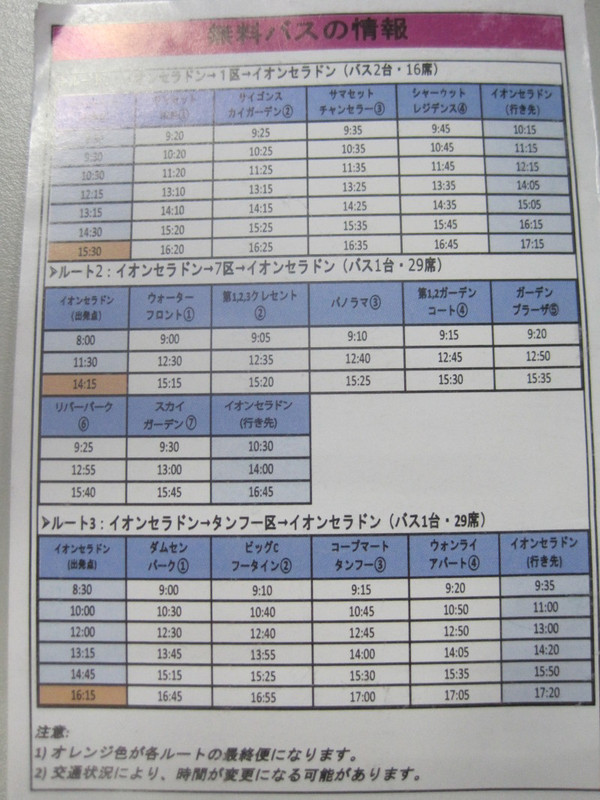 無料バスの情報
イオンセラドン→1区→イオンセラドン（バス2台・16席）
サイゴンス サマセット シャーウット イオンセラドン
① カイガーデン② チャンセラー③ レジデンス④ (行き先)
9:20 9:25 9:35 9:45 10:15
9:30 10:20 10:25 10:35 10:45 11:15
10:30 11:20 11:25 11:35 11:45 12:15
12:15 13:10 13:15 13:25 13:35 14:05
13:15 14:10 14:15 14:25 14:35 15:05
14:30 15:20 15:25 15:35 15:45 16:15
15:30 16:20 16:25 16:35 16:45 17:15
➤ルート2：イオンセラドン→7区→イオンセラドン（バス1台・29席）
イオンセラドン ウォーター 第1,2,3クレセント パノラマ③ 第1,2ガーデン ガーデン
(出発点) フロント① ② コート④ プラーザ⑤
8:00 9:00 9:05 9:10 9:15 9:20
11:30 12:30 12:35 12:40 12:45 12:50
14:15 15:15 15:20 15:25 15:30 15:35
リバーパーク スカイ イオンセラドン
⑥ ガーデン⑦ (行き先)
9:25 9:30 10:30
12:55 13:00 14:00
15:40 15:45 16:45
➤ルート3：イオンセラドン→タンフー区→イオンセラドン（バス1台・29席）
イオンセラドン ダムセン ビッグC コープマート ウォンライ イオンセラドン
(出発点) パーク① フータイン② タンフー③ アパート④ (行き先)
8:30 9:00 9:10 9:15 9:20 9:35
10:00 10:30 10:40 10:45 10:50 11:00
12:00 12:30 12:40 12:45 12:50 13:00
13:15 13:45 13:55 14:00 14:05 14:20
14:45 15:15 15:25 15:30 15:35 15:50
16:15 16:45 16:55 17:00 17:05 17:20
注意:
1) オレンジ色が各ルートの最終便になります。
2) 交通状況により、時間が変更になる可能があります。